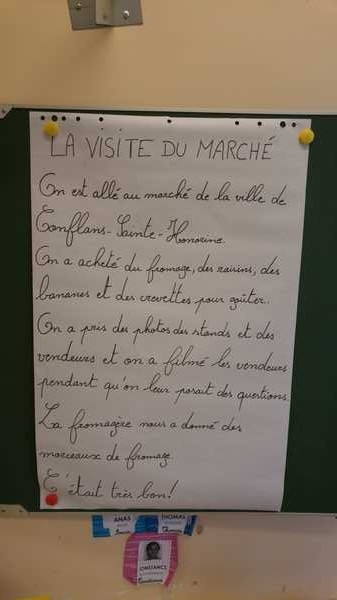 LA VISITE DU MARCHÉ
On est allé au marché de la ville de
Conflans-Sainte-Honorine.
On a acheté du fromage, des raisins, des
bananes et des crevettes pour goûter.
On a pris des photos des stands et des
vendeurs et on a filmé les vendeurs
pendant qu'on leur posait des questions.
La fromagère nous a donné des
morceaux de fromage.
C'était très bon!
ANAS
THOMAS
CONSTANCE